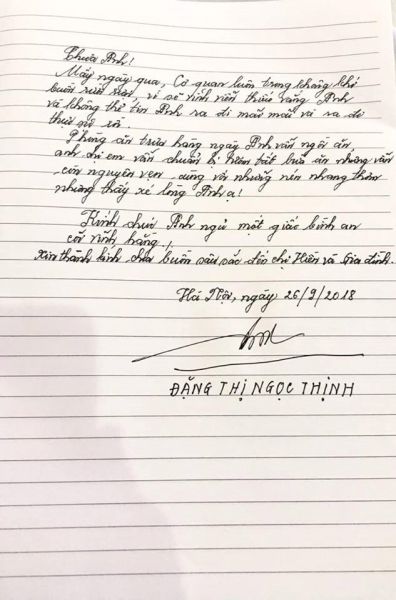 Thưa Anh!
Mấy ngày qua, Cơ quan luôn trong không khí
buồn rười rượi, vì sẽ vĩnh viễn thiếu vắng Anh
và không thể tin Anh ra đi mãi mãi và ra đi
thật rồi
Phòng ăn trưa hàng ngày Anh vẫn ngồi ăn,
anh chị em vẫn chuẩn bị bữa ăn nhưng vẫn
còn nguyên vẹn cùng với những nén nhang thơm
nhưng thấy xé lòng Anh ạ!
Kính chúc Anh ngủ một giấc bình an
cõi vĩnh hằng.
Xin thành kính chia buồn sâu sắc đến chị Hiền và Gia đình.
Hà Nội, ngày 26/9/2018
ĐẶNG THỊ NGỌC THỊNH